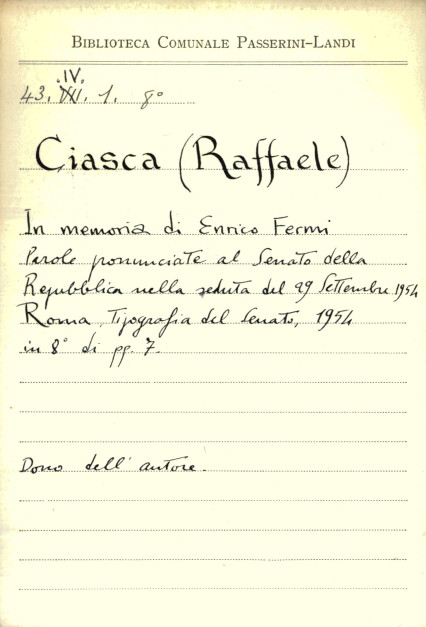 BIBLIOTECA COMUNALE PASSERINI-LANDI
.IV.
43. XII. 1. 8°
Ciasca (Raffaele)
In memoria di Enrico Fermi
Parole pronunciate al Senato della
Repubblica nella seduta del 29 Settembre 1954
Roma, Tipografia del Senato, 1954
in 8° di pp. 7.
Dono dell'autore.